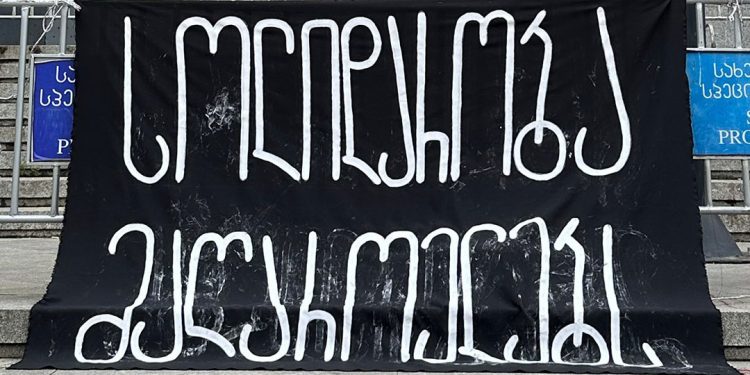 სოლიდარობა
მაღაროელებს
სა
სპე
P
სახე
სპეცი
S
PRO